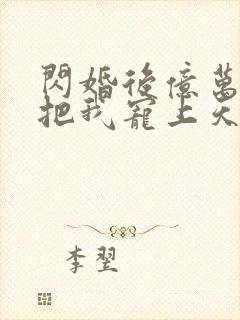 閃婚後億萬
把我寵上天
李翌